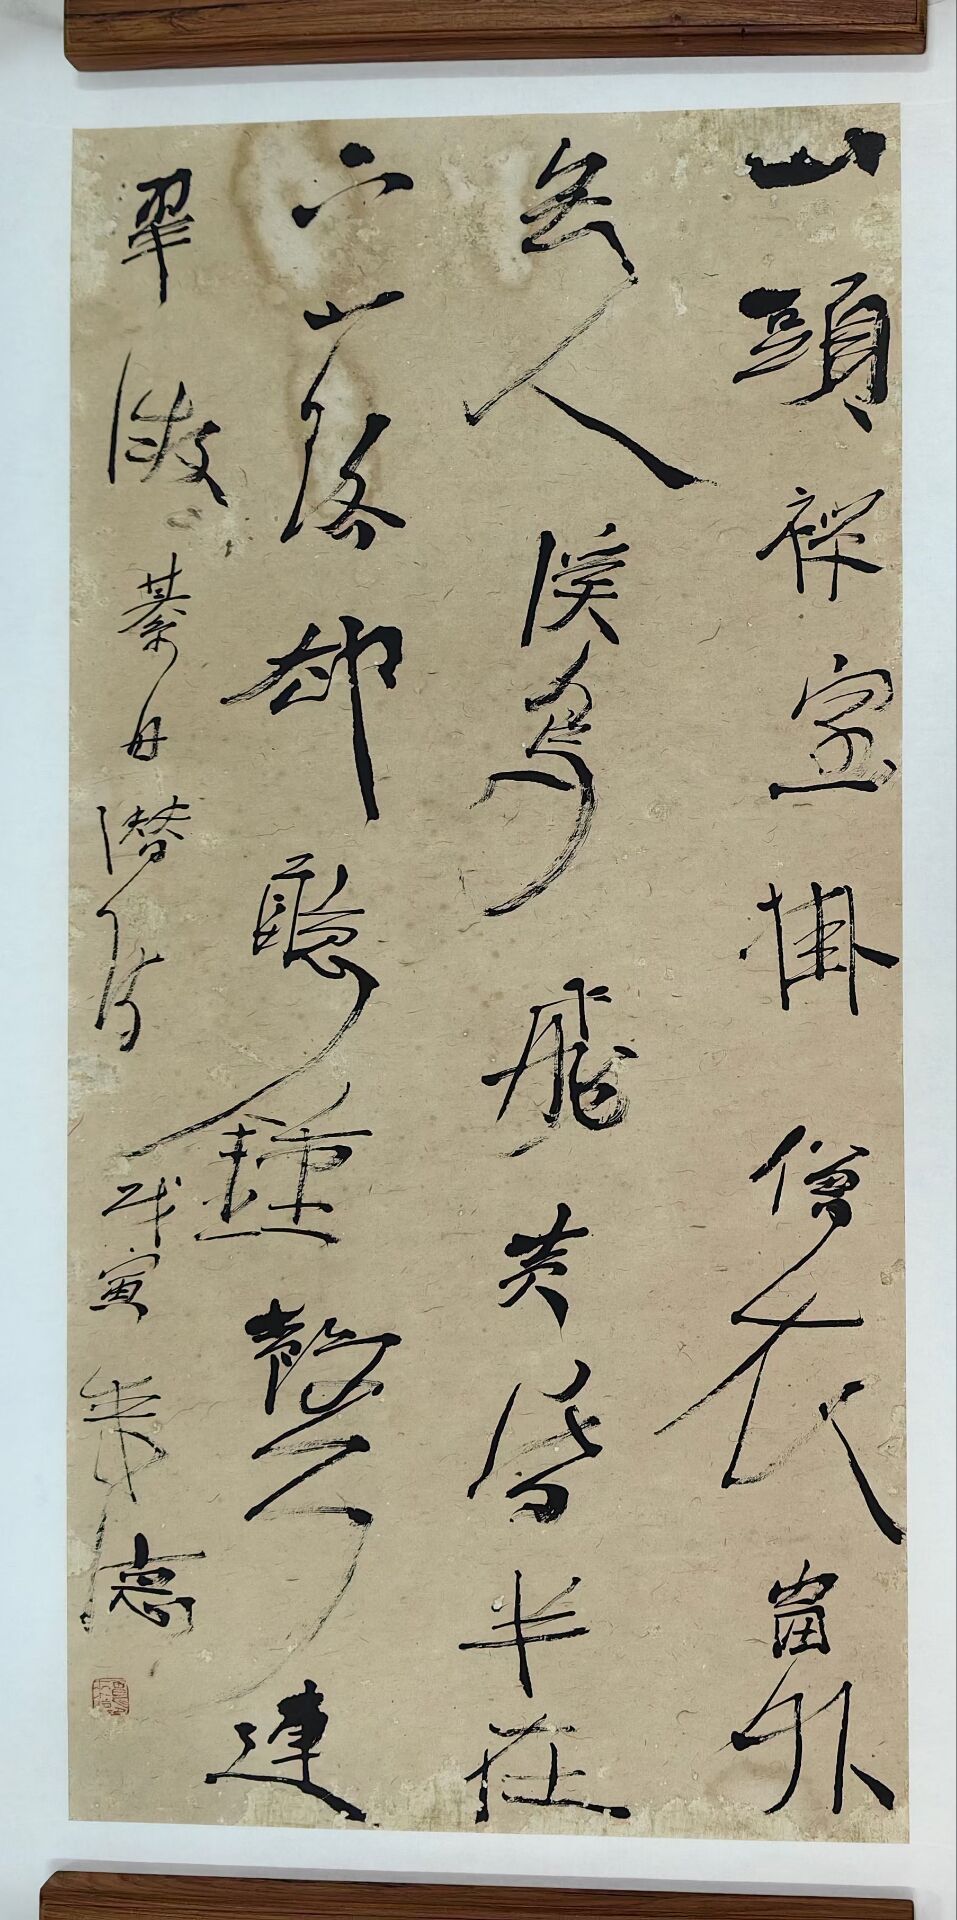 山頭禅室掛僧衣窗外
無人溪鳥飛黄昏半在
下山路却聽鐘聲連
翠微 綦毋潜诗 戊寅 朱德